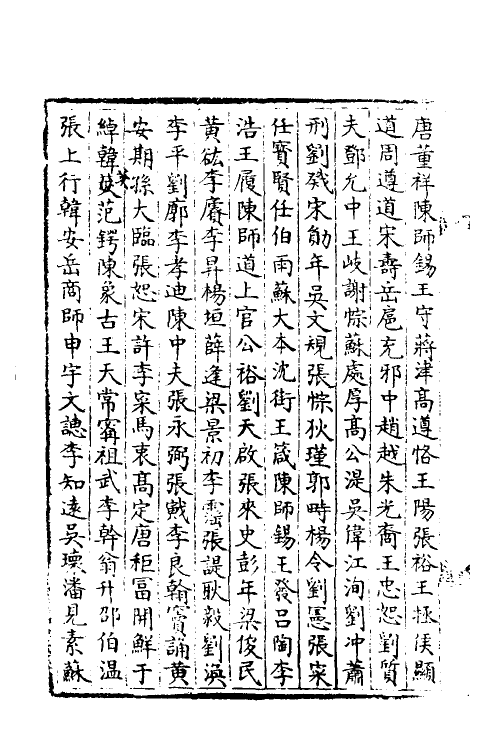 唐董祥陳師錫王守蔣津髙遵恪王陽張裕王拯侯顯
道周遵道宋壽岳扈充邪中趙越朱光裔王忠恕劉質
夫鄧允中王岐謝悰蘇處厚髙公湜吳偉江洵劉冲蕭
刑劉㦮宋勛年吳文規張悰狄瑾郭時楊令劉㥶張寀
任賓賢任伯雨蘇大本沈街王箴陳師錫王發吕陶李
浩王履陳師道上官公裕劉天啟張來史彭年梁俊民
黄紘李賡李昇楊垣薛逢梁景初李霑張諟耿毅劉渙
李平劉廓李孝迪陳中夫張永弼張戩李良翰竇誦黄
安期孫大臨張恕宋許李寀馬衷髙定唐秬冨開鮮于
綽韓英范鍔陳彖古王天常甯祖武李幹翁升邵伯温
張上行韓安岳商師申宇文諰李知遠吳瓌潘見素蘇